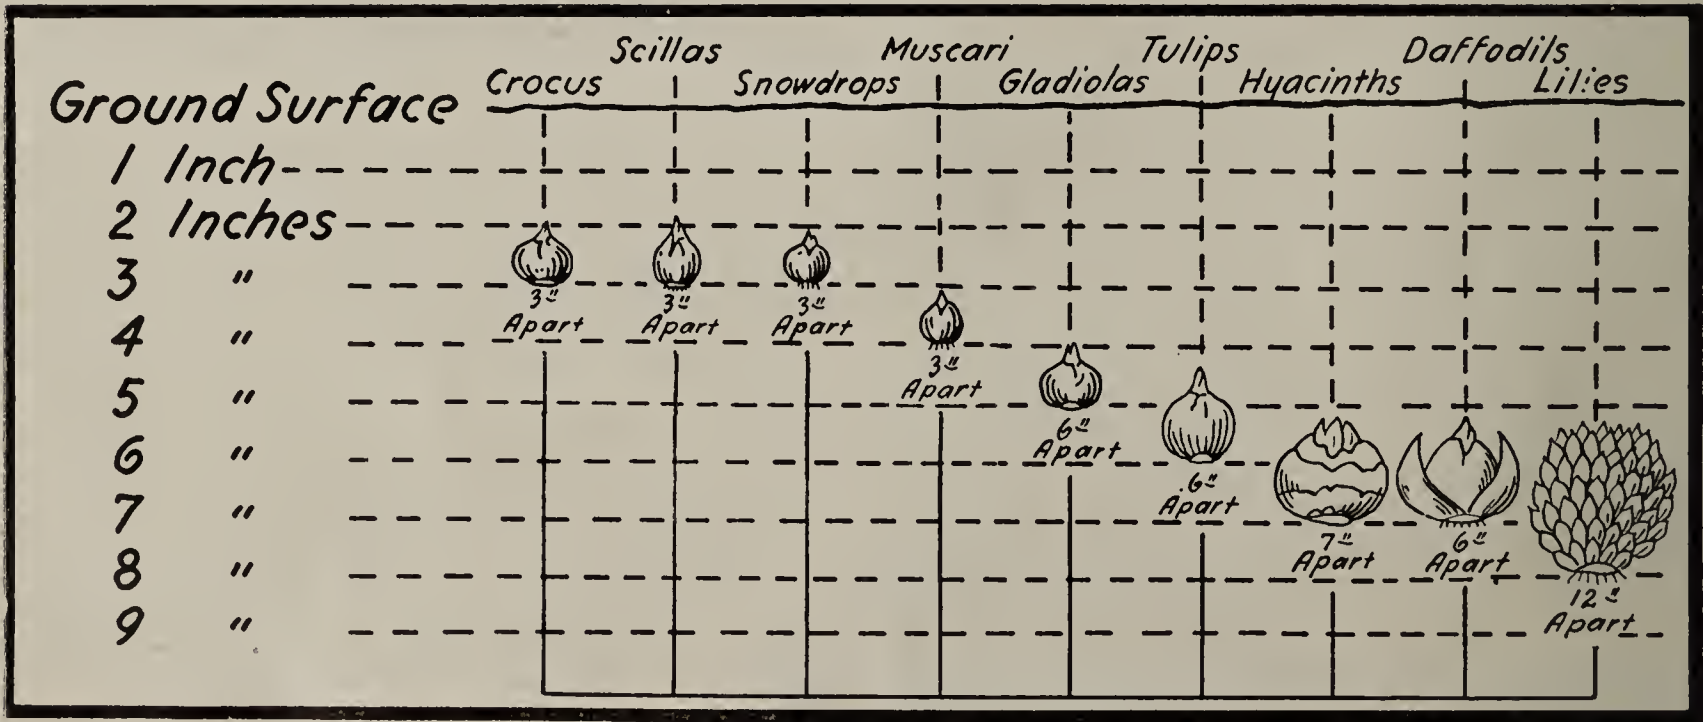 Scillas Muscari Tulips Daffodils
Crocus Snowdrops Gladiolas Hyacinths Lilies
Ground Surface
1 Inch
2 Inches
3 "
4 "
5 "
6 "
7 "
8 "
9 "
3" Apart
3" Apart
3" Apart
3" Apart
6" Apart
6" Apart
7" Apart
6" Apart
12" Apart